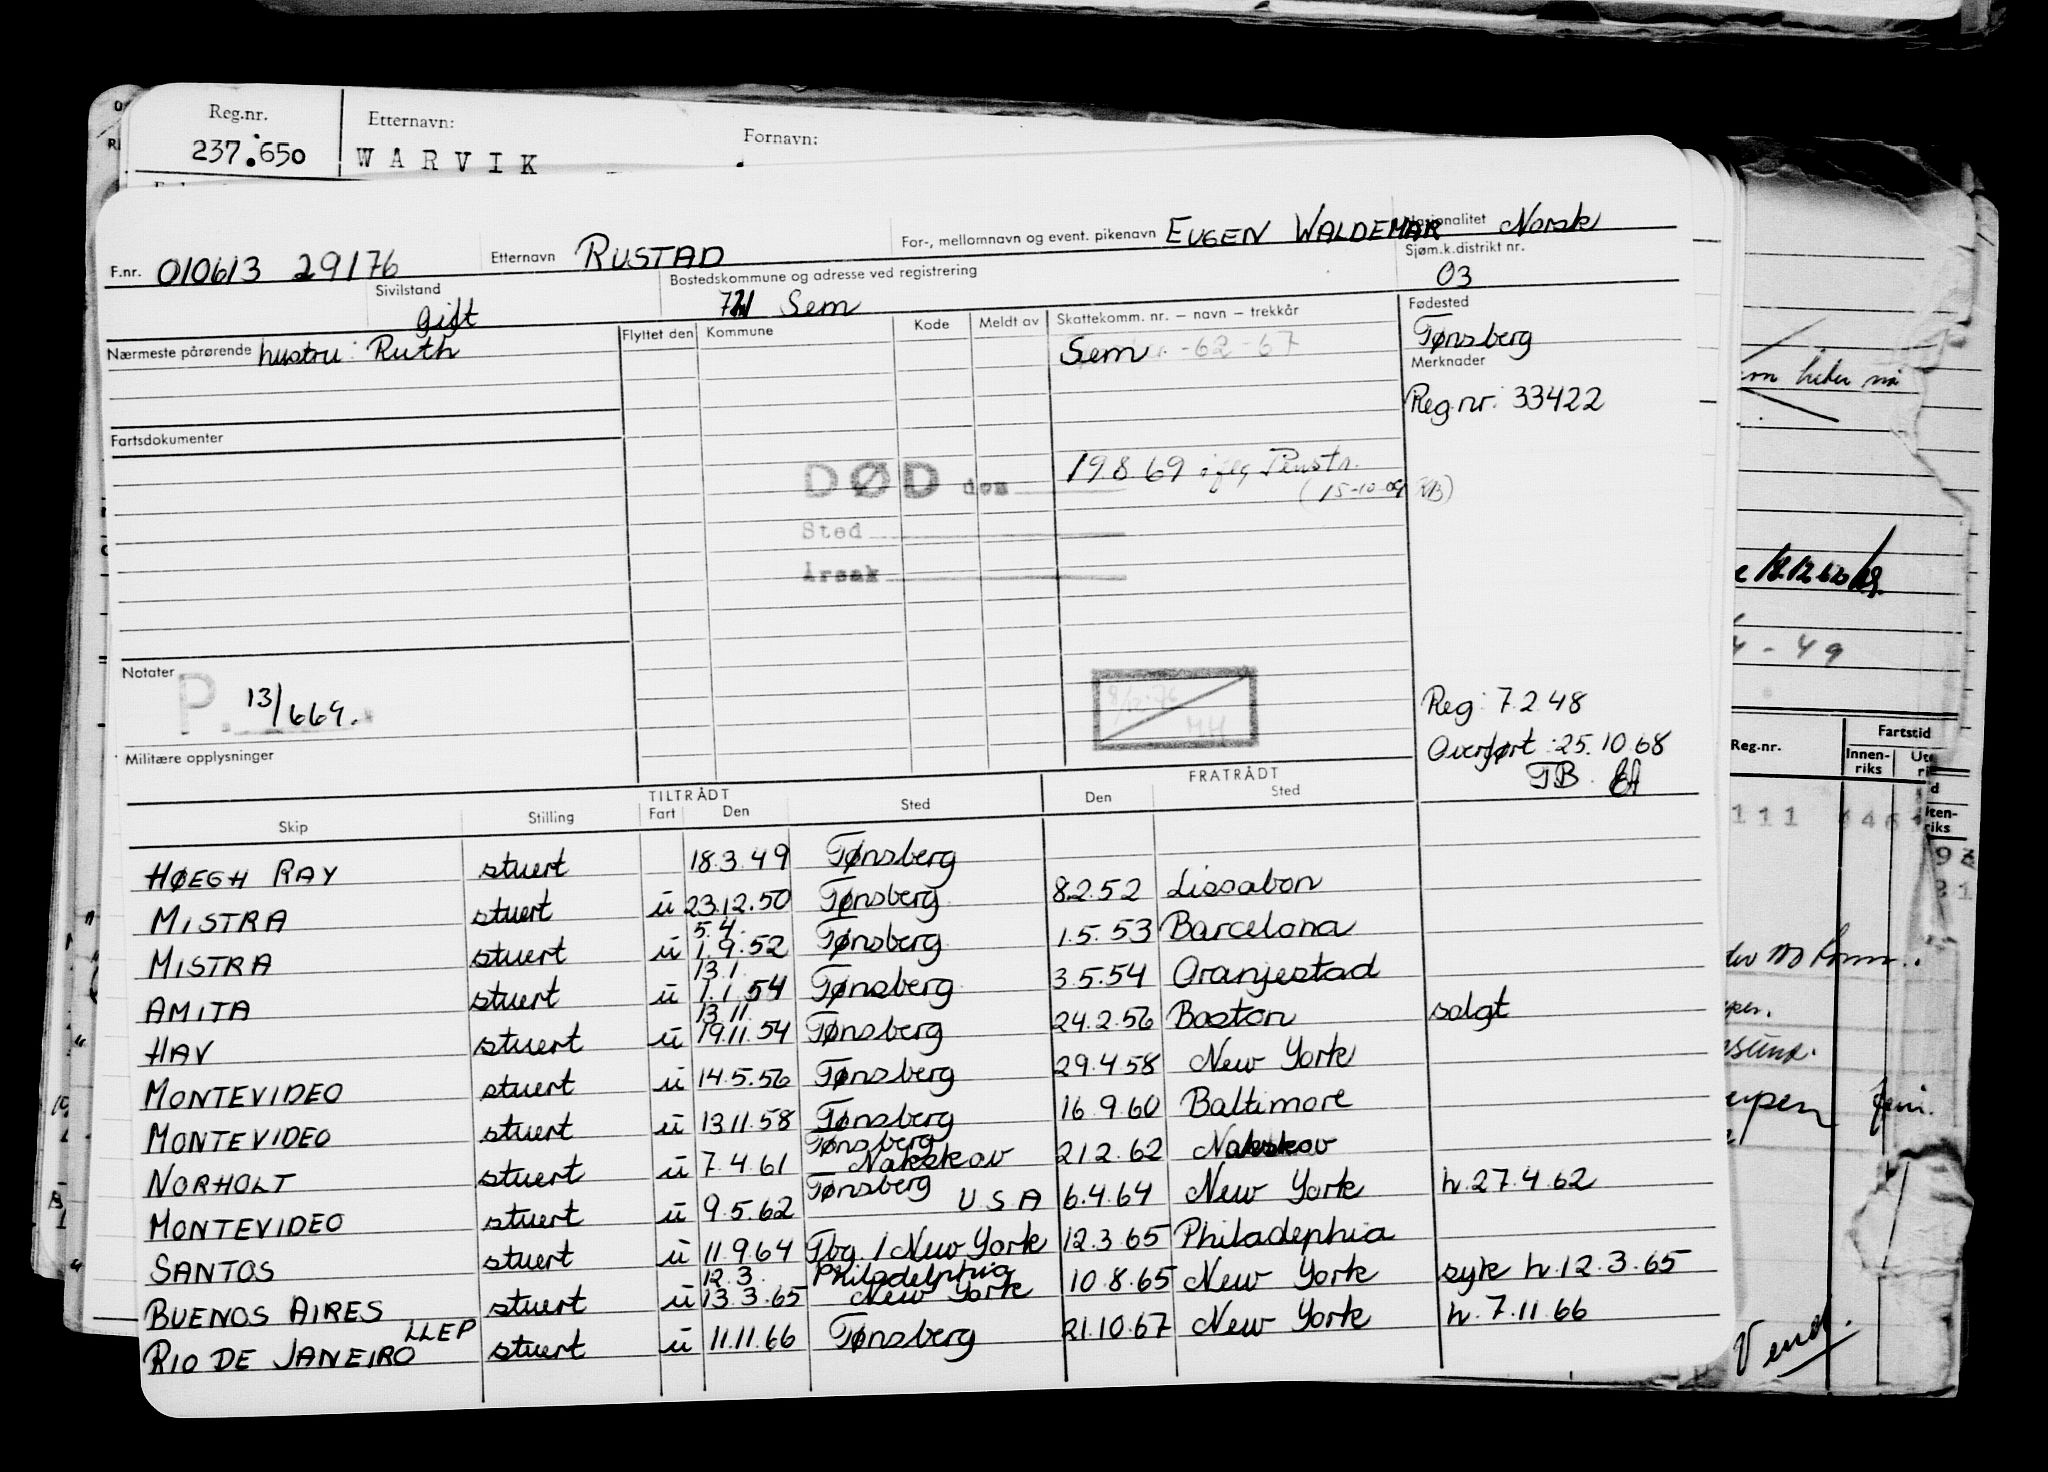 Reg.nr. Etternavn: Fornavn:
237.650 WARVIK
F.nr. 010613 29176 Etternavn RUSTAD For-, mellomnavn og event. pikenavn EUGEN WALDEMAR Nasjonalitet Norsk
Sivilstand gift Bostedskommune og adresse ved registrering Sem Sjøm.k.distrikt nr. 03
Nærmeste pårørende hustru: Ruth
Flyttet den Kommune Kode Meldt av Skattekomm. nr. – navn – trekkår Fødested
Sem -62-67 Tønsberg
Merknader
Reg.nr: 33422
Fartsdokumenter
DØD den 19 8 69 iflg Penstr.
(15-10-69
Sted
Årsak
Notater
P. 13/669.
Reg: 7.2.48
Militære opplysninger
Overført: 25.10.68
TB.
TILTRÅDT FRATRÅDT
Skip Stilling Fart Den Sted Den Sted
HØEGH RAY stuert 18.3.49 Tønsberg
MISTRA stuert u 23.12.50 Tønsberg 8.2.52 Lissabon
5.4.
MISTRA stuert u 1.9.52 Tønsberg 1.5.53 Barcelona
13.1.
AMITA stuert u 1.1.54 Tønsberg 3.5.54 Oranjestad
13.11.
HAV stuert u 19.11.54 Tønsberg 24.2.56 Boston solgt
MONTEVIDEO stuert u 14.5.56 Tønsberg 29.4.58 New York
MONTEVIDEO stuert u 13.11.58 Tønsberg 16.9.60 Baltimore
Tønsberg
NORHOLT stuert u 7.4.61 Nakskov 21.2.62 Nakskov
Tønsberg
MONTEVIDEO stuert u 9.5.62 USA 6.4.64 New York h.27.4.62
SANTOS stuert u 11.9.64 Tbg. / New York 12.3.65 Philadephia
12.3. Philadelphia
BUENOS AIRES stuert u 13.3.65 New York 10.8.65 New York syk h.12.3.65
RIO DE JANEIRO LLEP stuert u 11.11.66 Tønsberg 21.10.67 New York h.7.11.66
Reg.nr. Fartstid
Innen-riks
111
Vend.